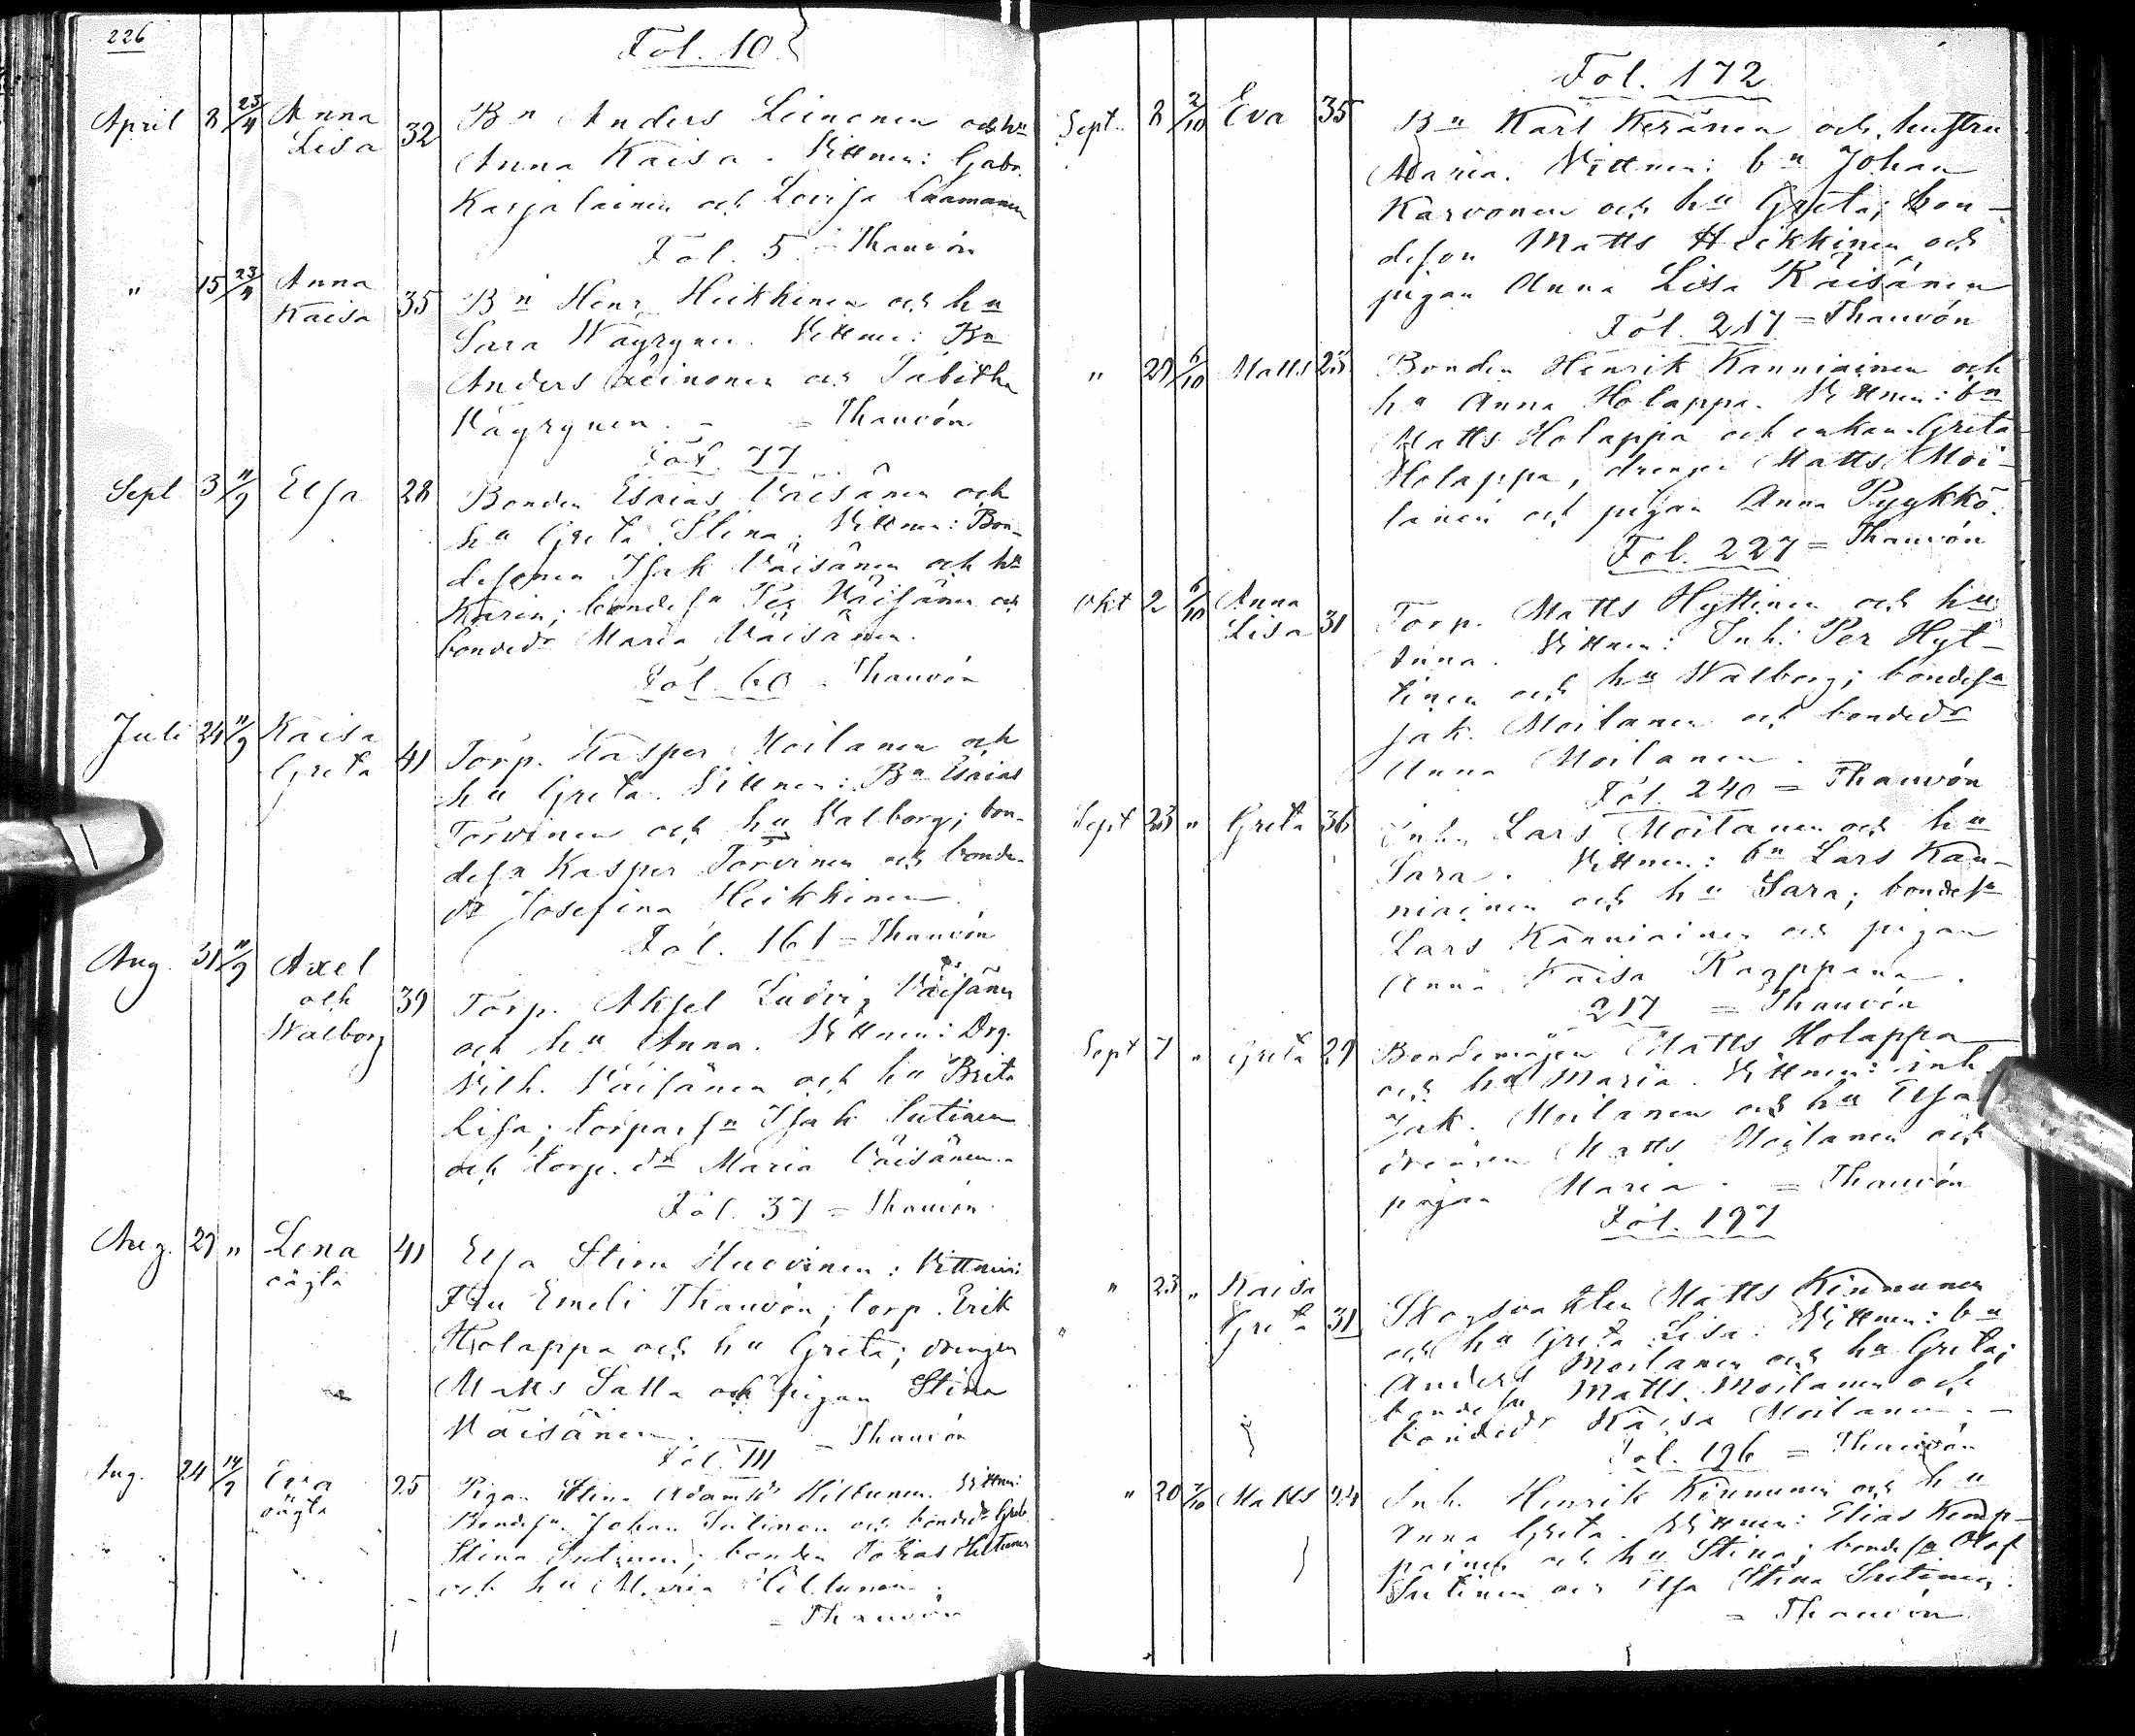 226
Fol. 10
April 8 23/4 Anna Lisa 32 Bn Anders Leinonen och hu
Anna Kaisa. Vittnen: Gabr.
Karjalainen och Lovisa Laamanen
Fol. 5 = Thauvón
" 15 23/4 Anna Kaisa 35 Bn Henr. Heikkinen och hu
Sara Väyrynen. Vittnen: Bn
Anders Leinonen och Tabitha
Väyrynen. = Thauvón
Fol. 77
Sept 3 11/9 Elsa 28 Bonden Esaias Väisänen och
hu Greta Stina. Vittnen: Bon-
desonen Isak Väisänen och hu
Karin; bondesn Per Väisänen och
bondedr Maria Väisänen.
Fol. 60 = Thauvón
Juli 24 11/9 Kaisa Greta 41 Torp. Kasper Moilanen och
hu Greta. Vittnen: Bn Esaias
Torvinen och hu Valborg; bon-
desn Kasper Torvinen och bonde-
dr Josefina Heikkinen.
Fol. 161 = Thauvón
Aug. 31 11/9 Axel och Walborg 39 Torp. Aksel Ludvig Väisänen
och hu Anna. Vittnen: Drg.
Vilh. Väisänen och hu Brita
Lisa; torparsn Isak Sutinen
och torp. dr Maria Väisänen.
Fol. 37 = Thauvón
Aug. 29 " Lena oägta 41 Elsa Stina Huovinen: Vittnen:
Fru Emeli Thauvón; torp. Erik
Holappa och hu Greta; drengen
Matts Salla och pigan Stina
Väisänen. = Thauvón
Fol. 111
Aug. 24 14/9 Eva oägta 25 Pigan Stina Adamsdr Hiltunen. Vittnen:
Bondesn Johan Sutinen och bondedr Greta
Stina Sutinen; bonden Tobias Hiltunen
och hu Maria Hiltunen.
= Thauvón
Fol. 172
Sept. 8 2/10 Eva 35 Bn Karl Keränen och hustru
Maria. Vittnen: bn Johan
Karvonen och hu Greta; bon-
deson Matts Heikkinen och
pigan Anna Lisa Räisänen
Fol. 217 = Thauvón
" 29 6/10 Matts 23 Bonden Henrik Kanniainen och
hu Anna Holappa. Vittnen: bn
Matts Holappa och enkan Greta
Holappa, drengen Matts Moi-
lanen och pigan Anna Pyykkö.
Fol. 227 = Thauvón
Okt 2 6/10 Anna Lisa 31 Torp. Matts Hyttinen och hu
Anna. Vittnen: Inh. Per Hyt-
tinen och hu Walborg; bondesn
Jak. Moilanen och bondedr
Anna Moilanen.
Fol. 240 = Thauvón
Sept 23 " Greta 36 Inh. Lars Moilanen och hu
Sara. Vittnen: bn Lars Kan-
niainen och hu Sara; bondesn
Lars Kanniainen och pigan
Anna Kaisa
217 = Thauvón
Sept 7 " Greta 29 Bondemågen Matts Holappa
och hu Maria. Vittnen: inh.
Jak. Moilanen och hu Elsa
drengen Matts Moilanen och
pigan Maria. = Thauvón
Fol. 197
" 23 " Kaisa Greta 31 Skogsvakten Matts Kinnunen
och hu Greta Lisa. Vittnen: bn
Anders Moilanen och hu Greta;
bondesn Matts Moilanen och
bondedr Kaisa Moilanen. -
Fol. 196 = Thauvón
" 20 7/10 Matts 24 Inh. Henrik Kinnunen och hu
Anna Greta. Vittnen: Elias Kemp-
painen och hu Stina; bondesn Olof
Sutinen och Elsa Stina Sutinen.
= Thauvón